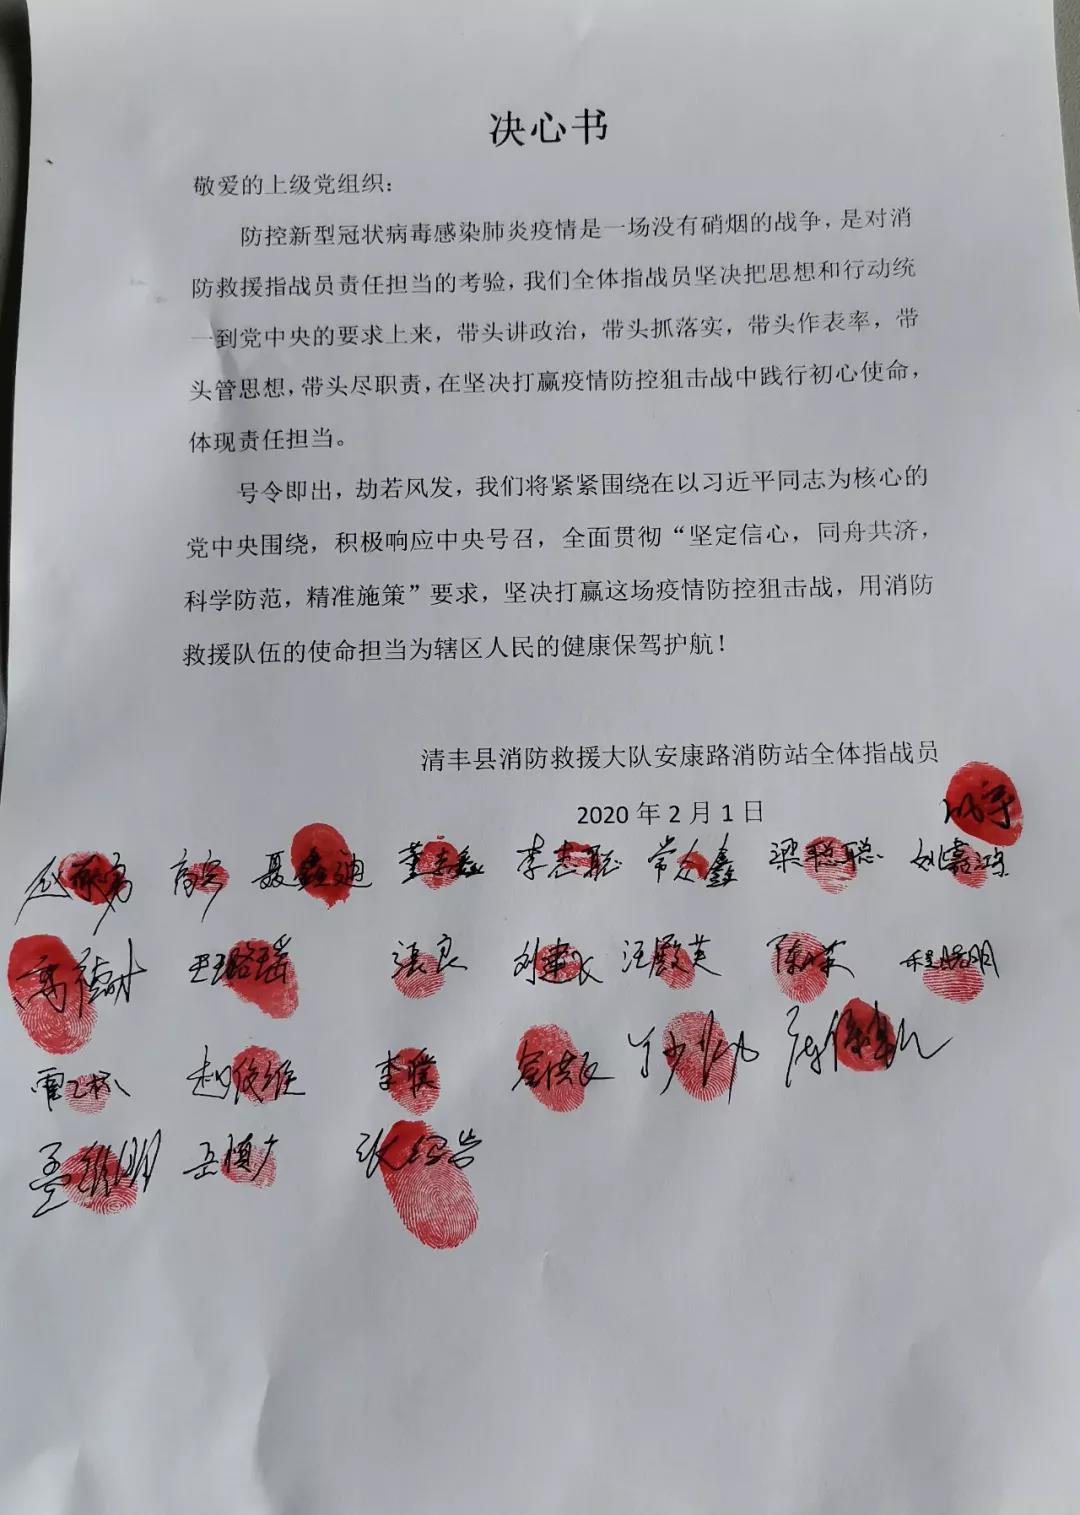 决心书
敬爱的上级党组织：
防控新型冠状病毒感染肺炎疫情是一场没有硝烟的战争，是对消
防救援指战员责任担当的考验，我们全体指战员坚决把思想和行动统
一到党中央的要求上来，带头讲政治，带头抓落实，带头作表率，带
头管思想，带头尽职责，在坚决打赢疫情防控狙击战中践行初心使命，
体现责任担当。
号令即出，劫若风发，我们将紧紧围绕在以习近平同志为核心的
党中央围绕，积极响应中央号召，全面贯彻“坚定信心，同舟共济，
科学防范，精准施策”要求，坚决打赢这场疫情防控狙击战，用消防
救援队伍的使命担当为辖区人民的健康保驾护航！
清丰县消防救援大队安康路消防站全体指战员
2020 年 2 月 1 日
聂鑫迪 董志鑫 李志聪 常久鑫 梁聪聪
张良 陈荣 程皓明
赵俊维
孟维明 岳慎广